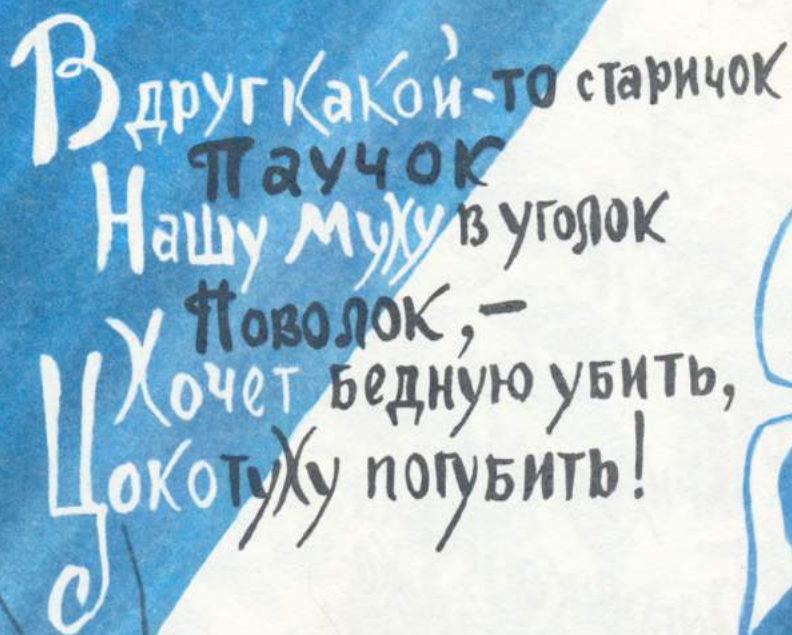 Вдруг какой-то старичок
Паучок
Нашу муху в уголок
Поволок,–
Хочет бедную убить,
Цокотуху погубить!